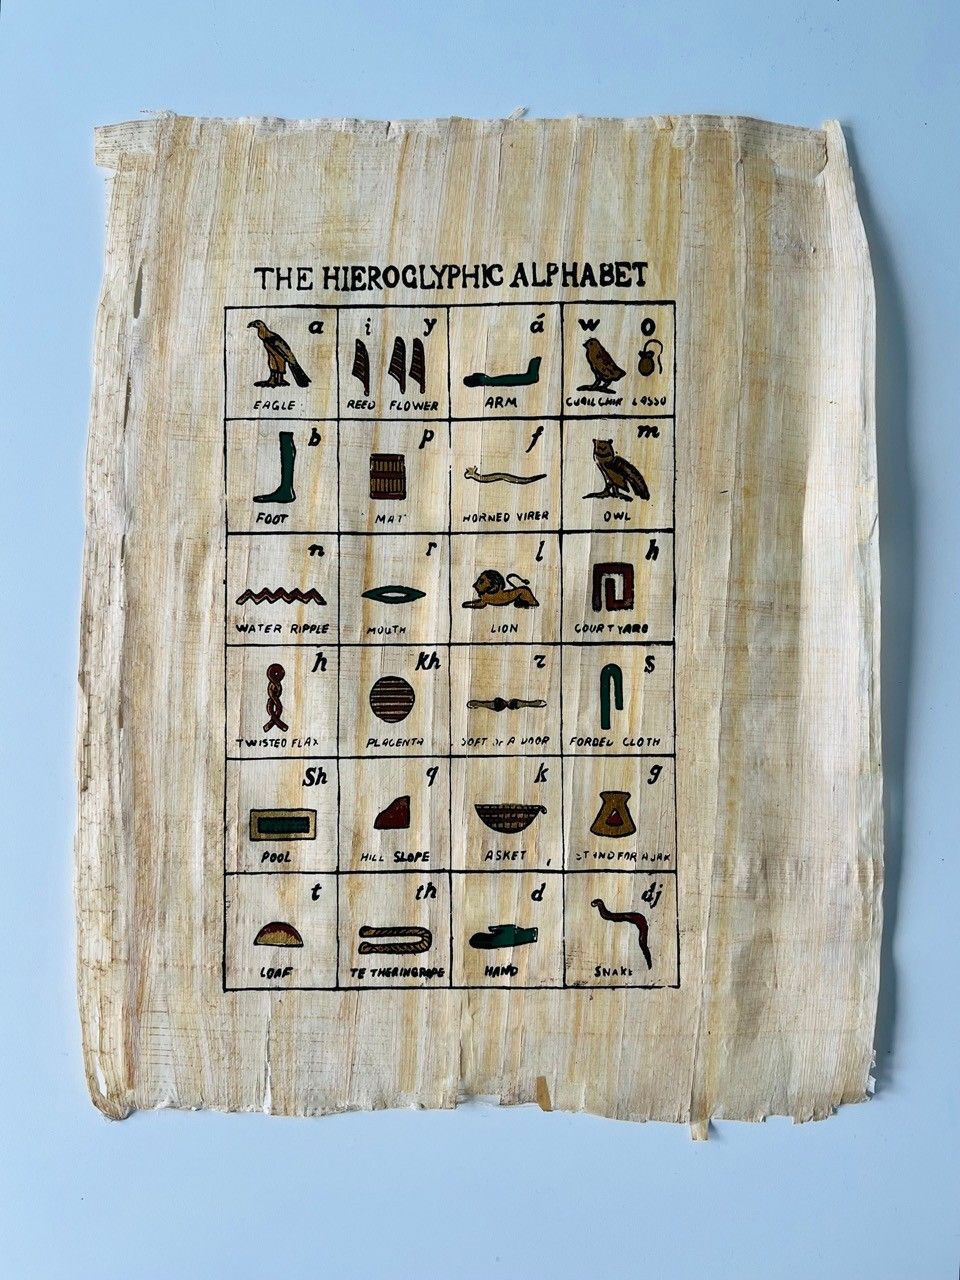 THE HIEROGLYPHIC ALPHABET
a i y á w o
EAGLE REED FLOWER ARM LASSO
b p f m
FOOT MAT HORNED VIPER OWL
n r l h
WATER RIPPLE MOUTH LION COURTYARD
h kh z s
TWISTED FLAX PLACENTA FORDEL CLOTH
Sh q k g
POOL HILL SLOPE ASKET STAND FOR A JAR
t th d dj
LOAF TETHERINGROPE HAND SNAKE